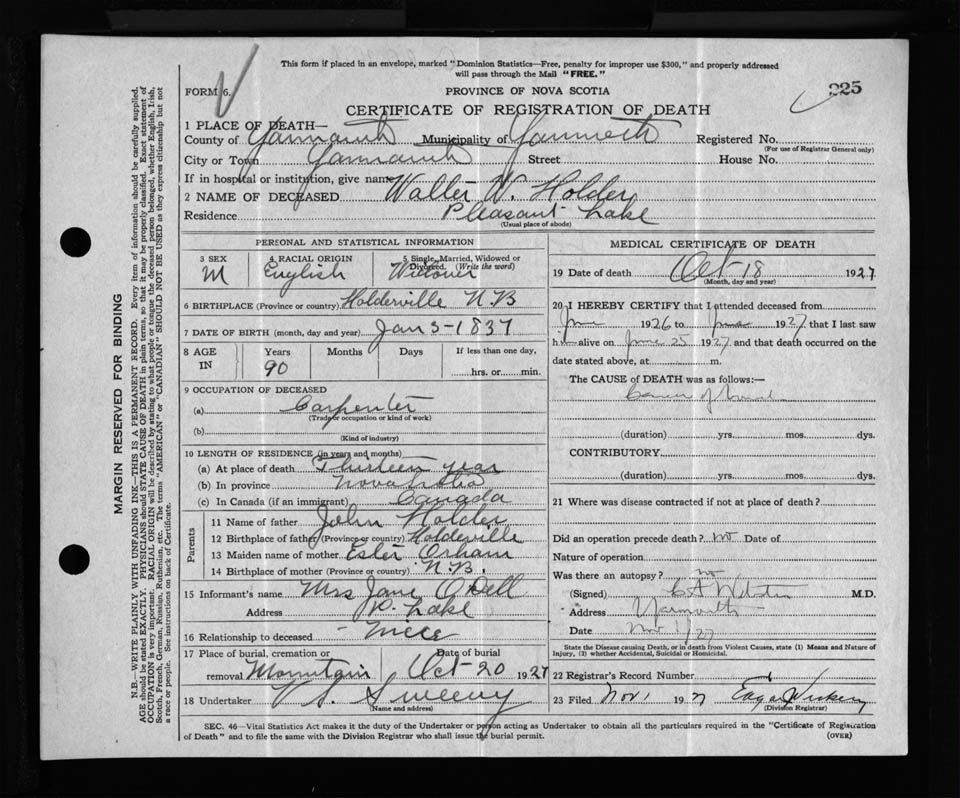 This form if placed in an envelope, marked "Dominion Statistics—Free, penalty for improper use $300," and properly addressed
will pass through the Mail "FREE."
FORM 6.
PROVINCE OF NOVA SCOTIA
225
CERTIFICATE OF REGISTRATION OF DEATH
1 PLACE OF DEATH—
County of Yarmouth Municipality of Yarmouth Registered No.
(For use of Registrar General only)
City or Town Yarmouth Street House No.
If in hospital or institution, give name
2 NAME OF DECEASED Walter W. Holder
Residence Pleasant Lake
(Usual place of abode)
PERSONAL AND STATISTICAL INFORMATION
3 SEX 4 RACIAL ORIGIN 5 Single, Married, Widowed or
Divorced. (Write the word)
M English Widower
6 BIRTHPLACE (Province or country) Holderville N.B
7 DATE OF BIRTH (month, day and year) Jan 3-1837
8 AGE IN Years Months Days If less than one day,
90 hrs. or min.
9 OCCUPATION OF DECEASED
(a) Carpenter
(Trade or occupation or kind of work)
(b)
(Kind of industry)
10 LENGTH OF RESIDENCE (in years and months)
(a) At place of death Thirteen year
(b) In province Nova Scotia
(c) In Canada (if an immigrant) Canada
Parents
11 Name of father John Holder
12 Birthplace of father (Province or country) Holderville
13 Maiden name of mother Ester Orham
14 Birthplace of mother (Province or country) N.B.
15 Informant's name Mrs Jane O'Dell
Address P. Lake
16 Relationship to deceased Niece
17 Place of burial, cremation or Date of burial
removal Mountain Oct-20 1927
18 Undertaker V. S. Sweeny
(Name and address)
MEDICAL CERTIFICATE OF DEATH
19 Date of death Oct-18 1927
(Month, day and year)
20 I HEREBY CERTIFY that I attended deceased from
June 1926 to June 1927 that I last saw
h alive on June 25 1927 and that death occurred on the
date stated above, at m.
The CAUSE of DEATH was as follows:—
Cancer of
(duration) yrs. mos. dys.
CONTRIBUTORY
(duration) yrs. mos. dys.
21 Where was disease contracted if not at place of death?
Did an operation precede death? no Date of
Nature of operation
Was there an autopsy? no
(Signed) C A Webster M.D.
Address Yarmouth
Date Nov 1/27
State the Disease causing Death, or in death from Violent Causes, state (1) Means and Nature of
Injury, (2) whether Accidental, Suicidal or Homicidal.
22 Registrar's Record Number
23 Filed Nov 1 1927 Edgar
(Division Registrar)
SEC. 46—Vital Statistics Act makes it the duty of the Undertaker or person acting as Undertaker to obtain all the particulars required in the "Certificate of Registration
of Death" and to file the same with the Division Registrar who shall issue the burial permit.
(OVER)
MARGIN RESERVED FOR BINDING
N.B.—WRITE PLAINLY WITH UNFADING INK—THIS IS A PERMANENT RECORD. Every item of information should be carefully supplied.
AGE should be stated EXACTLY. PHYSICIANS should STATE CAUSE OF DEATH in plain terms, so that it may be properly classified. Exact statement of
OCCUPATION is very important. RACIAL ORIGIN will be described by stating to what people or tongue the deceased person belonged, whether English, Irish,
Scotch, French, German, Russian, Ruthenian, etc. The terms "AMERICAN" or "CANADIAN" SHOULD NOT BE USED as they express citizenship but not
a race or people. See instructions on back of Certificate.